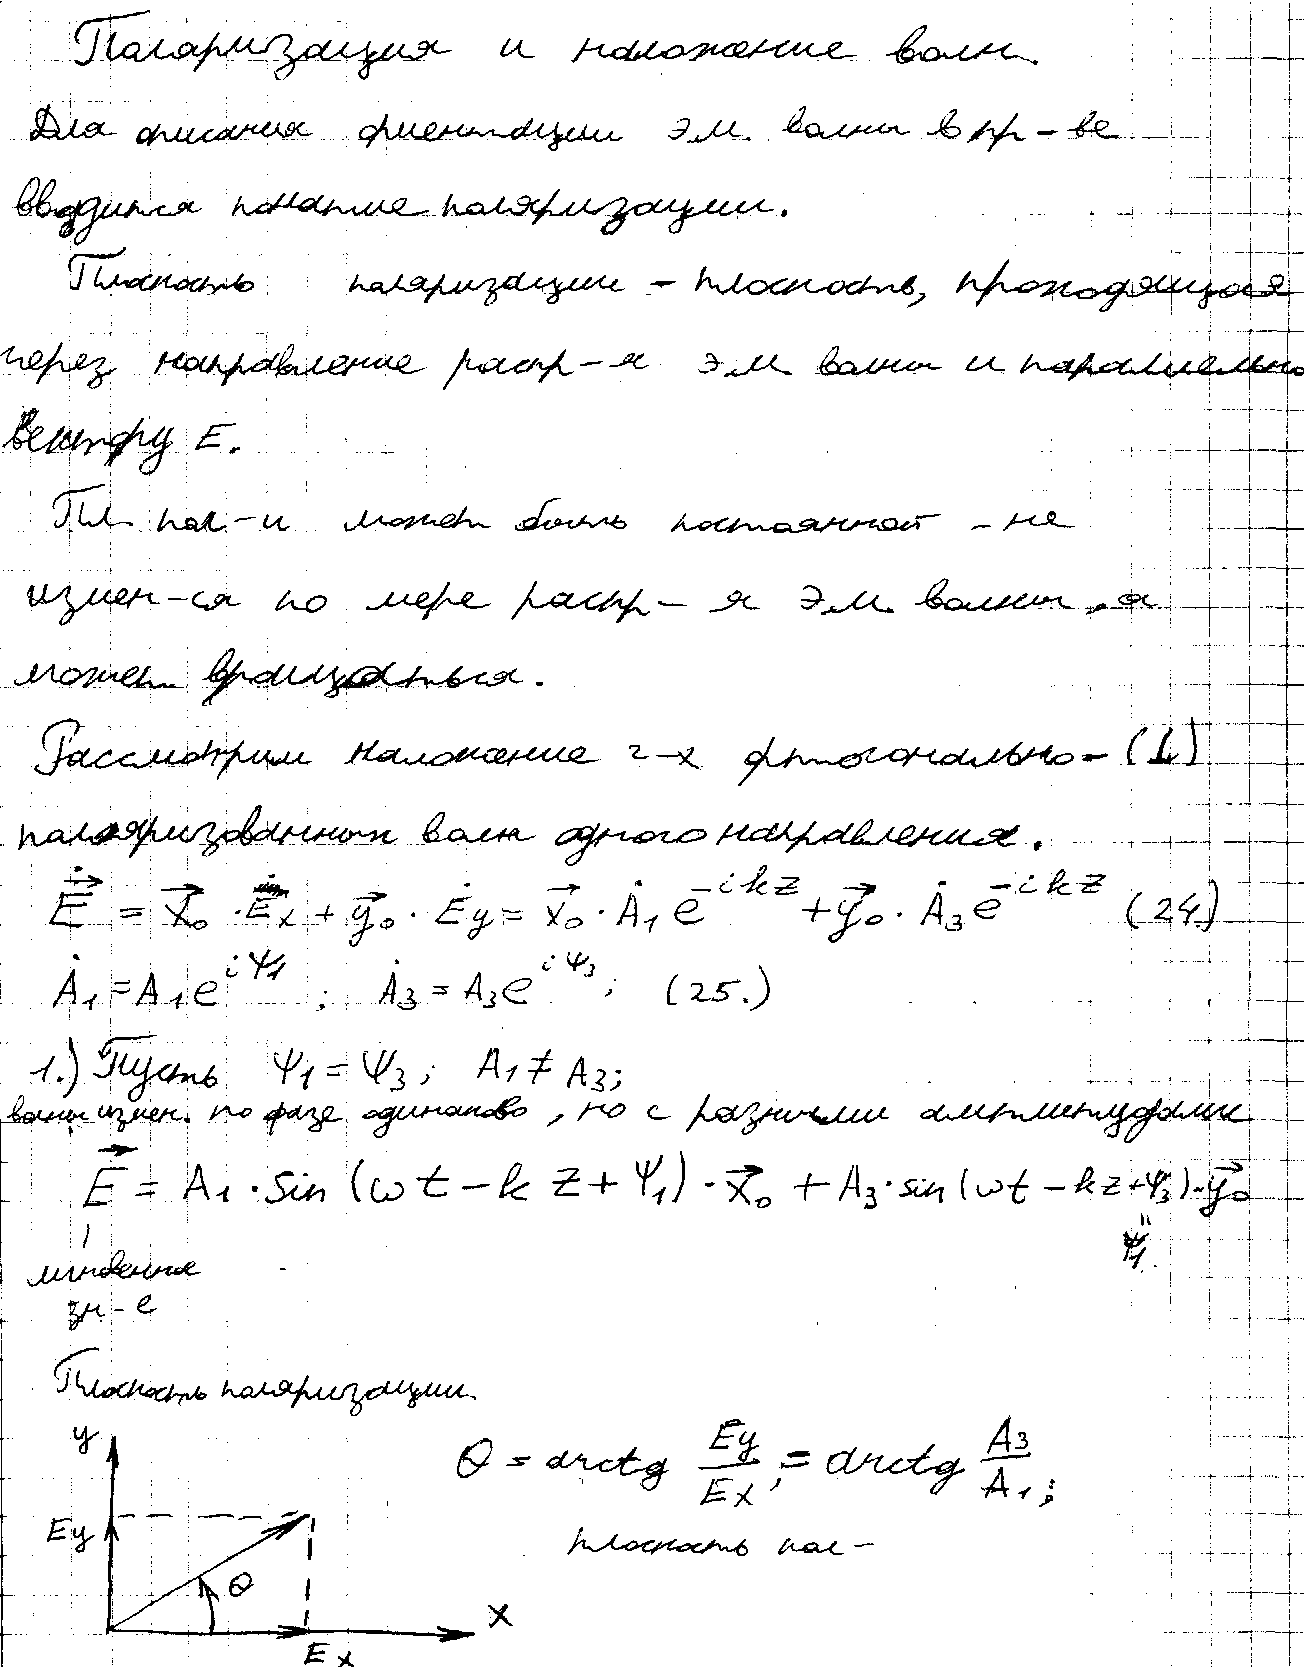 Поляризация и наложение волн.
Для описания ориентации эм. волны в пр-ве
вводится понятие поляризации.
Плоскость поляризации – плоскость, проходящая
через направление распр-я эм волны и параллельно
вектору E.
Пл. пол-и может быть постоянной – не
измен-ся по мере распр-я эм. волны, а
может вращаться.
Рассмотрим наложение 2-х ортогонально- (⊥)
поляризованных волн одного направления.
$\dot{\vec{E}} = \vec{x}_0 \cdot \dot{E}_x + \vec{y}_0 \cdot \dot{E}_y = \vec{x}_0 \cdot \dot{A}_1 e^{-ikz} + \vec{y}_0 \cdot \dot{A}_3 e^{-ikz}$ (24.)
$\dot{A}_1 = A_1 e^{i\psi_1}$; $\dot{A}_3 = A_3 e^{i\psi_3}$; (25.)
1.) Пусть $\psi_1 = \psi_3$; $A_1 \neq A_3$;
волны измен. по фазе одинаково, но с разными амплитудами
$\vec{E} = A_1 \cdot \sin(\omega t - kz + \psi_1) \cdot \vec{x}_0 + A_3 \cdot \sin(\omega t - kz + \psi_3) \cdot \vec{y}_0$
"
$\psi_1$
мгновенное
зн-е
Плоскость поляризации.
y
$\theta = arctg \frac{E_y}{E_x} = arctg \frac{A_3}{A_1}$;
Ey
плоскость пол-
θ
x
Ex